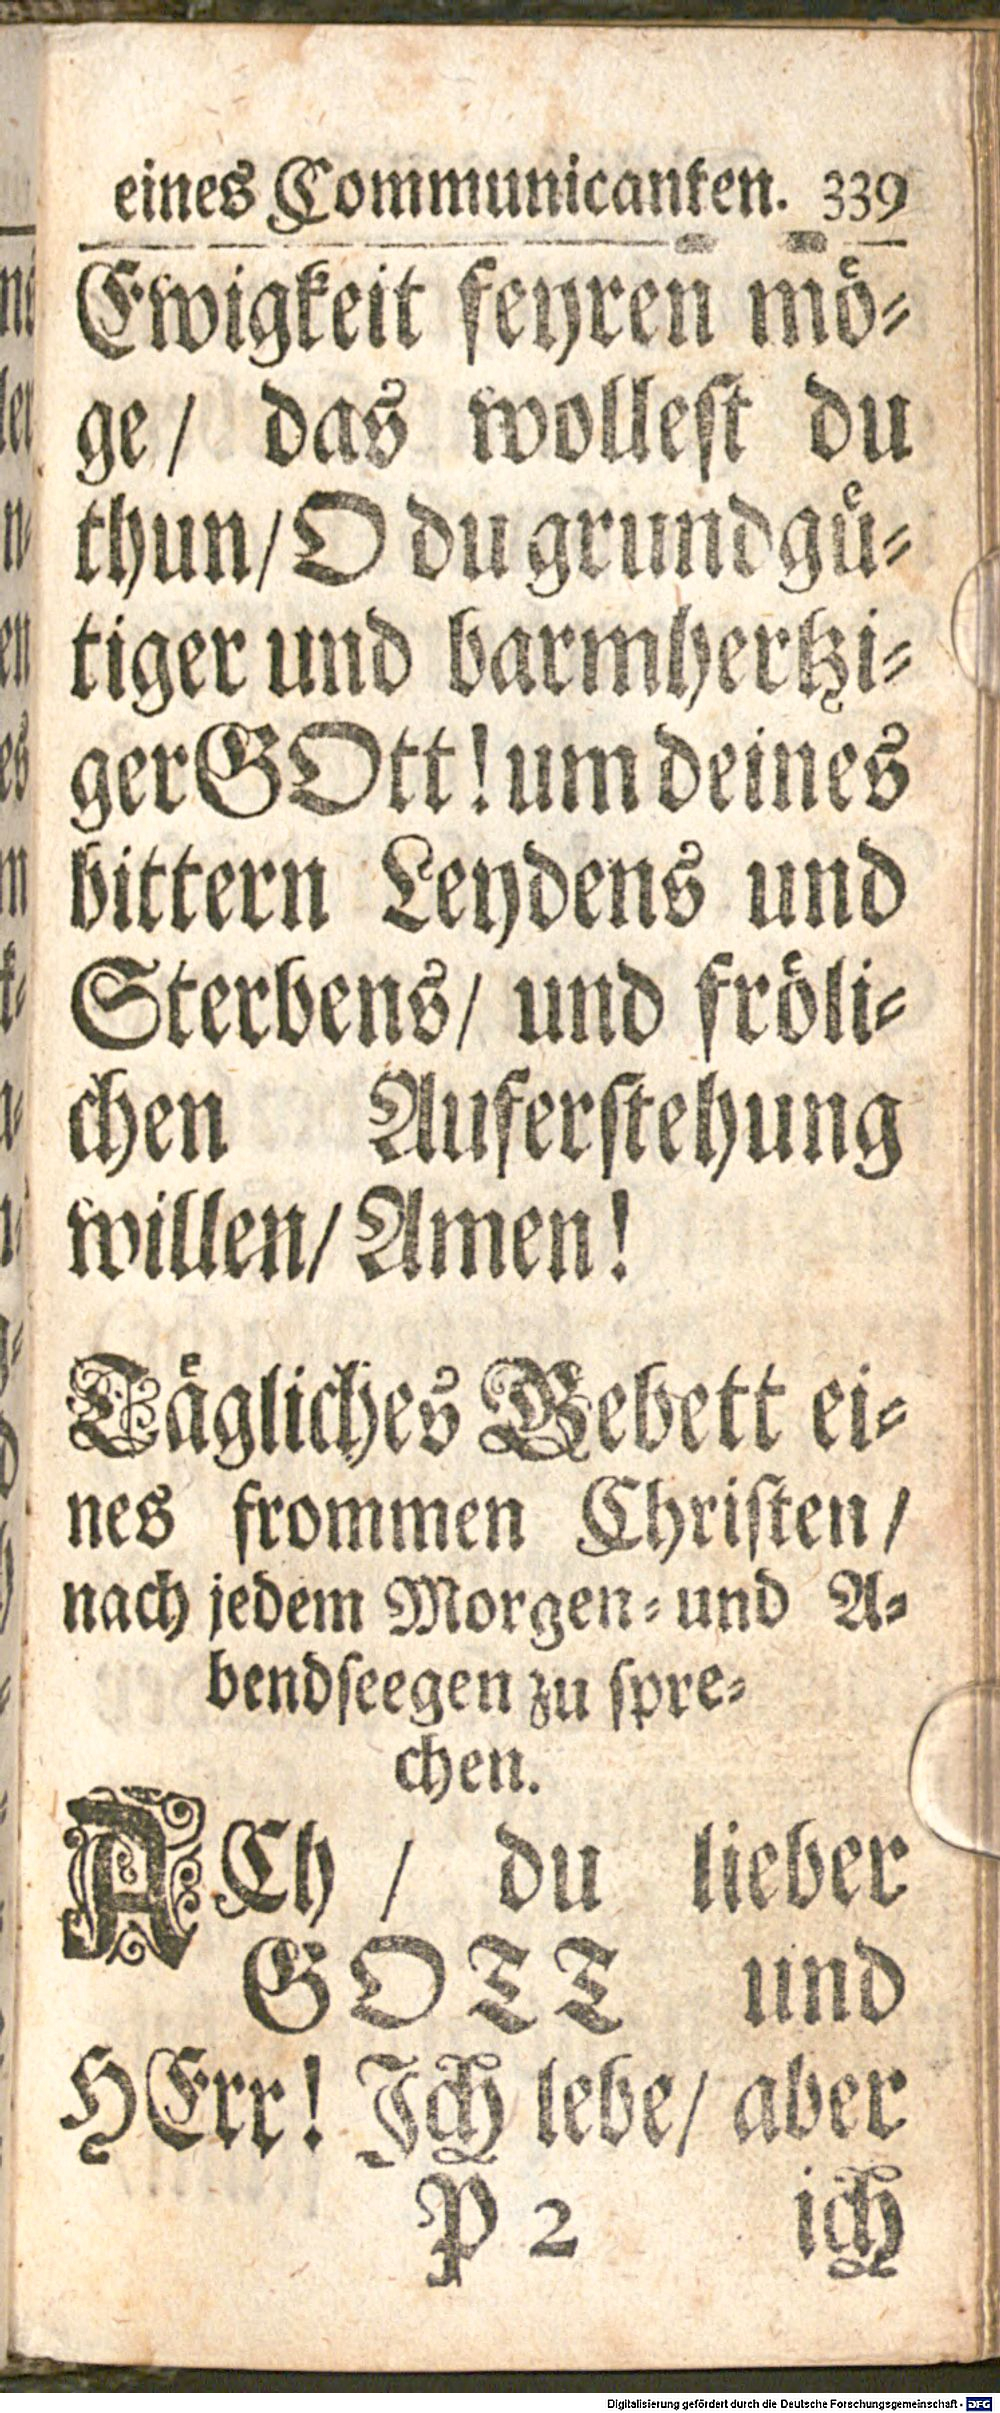 eines Communicanten. 339
Ewigkeit feyren moͤ⸗
ge / das wolleſt du
thun / O du grundguͤ⸗
tiger und barmhertzi⸗
ger GOtt! um deines
bittern Leydens und
Sterbens / und froͤli⸗
chen Auferſtehung
willen / Amen!
Taͤgliches Gebett ei⸗
nes frommen Chriſten /
nach jedem Morgen⸗ und A⸗
bendſeegen zu ſpre⸗
chen.
ACh / du lieber
GOTT und
HErr! Ich lebe / aber
P 2 ich
Digitalisierung gefördert durch die Deutsche Forschungsgemeinschaft - DFG